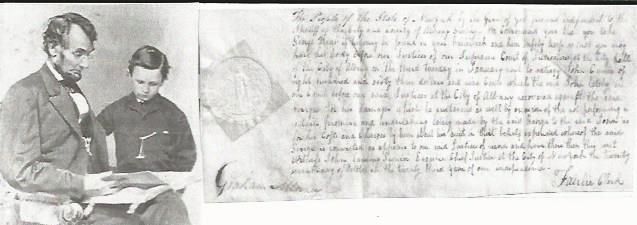 The People of the State of New York by the Grace of God free and independent to the
Sheriff of the City and County of Albany Greeting We Command you that you take
George if he may be found in your Bailiwick and him safely keep so that you may
have his body before our Justices of our Supreme Court of Judicature at the City Hall
of the City of Albany on the third Tuesday in January next to satisfy John
eight hundred and sixty three dollars and cents which the said John lately in
our Court before our Justices at the City of Albany recovered against the said
George for his damages which he sustained as well by reason of the not performing a
certain promise and undertaking made by the said George to the said John as
for his Costs and Charges by him about his suit in that behalf expended whereof the said
George is convicted as appears to us and have you then there this writ
Witness John Lansing Junior Esquire Chief Justice at the City of New York the
of in the twenty third year of our independence
Graham Attorney
Fairlie Clerk